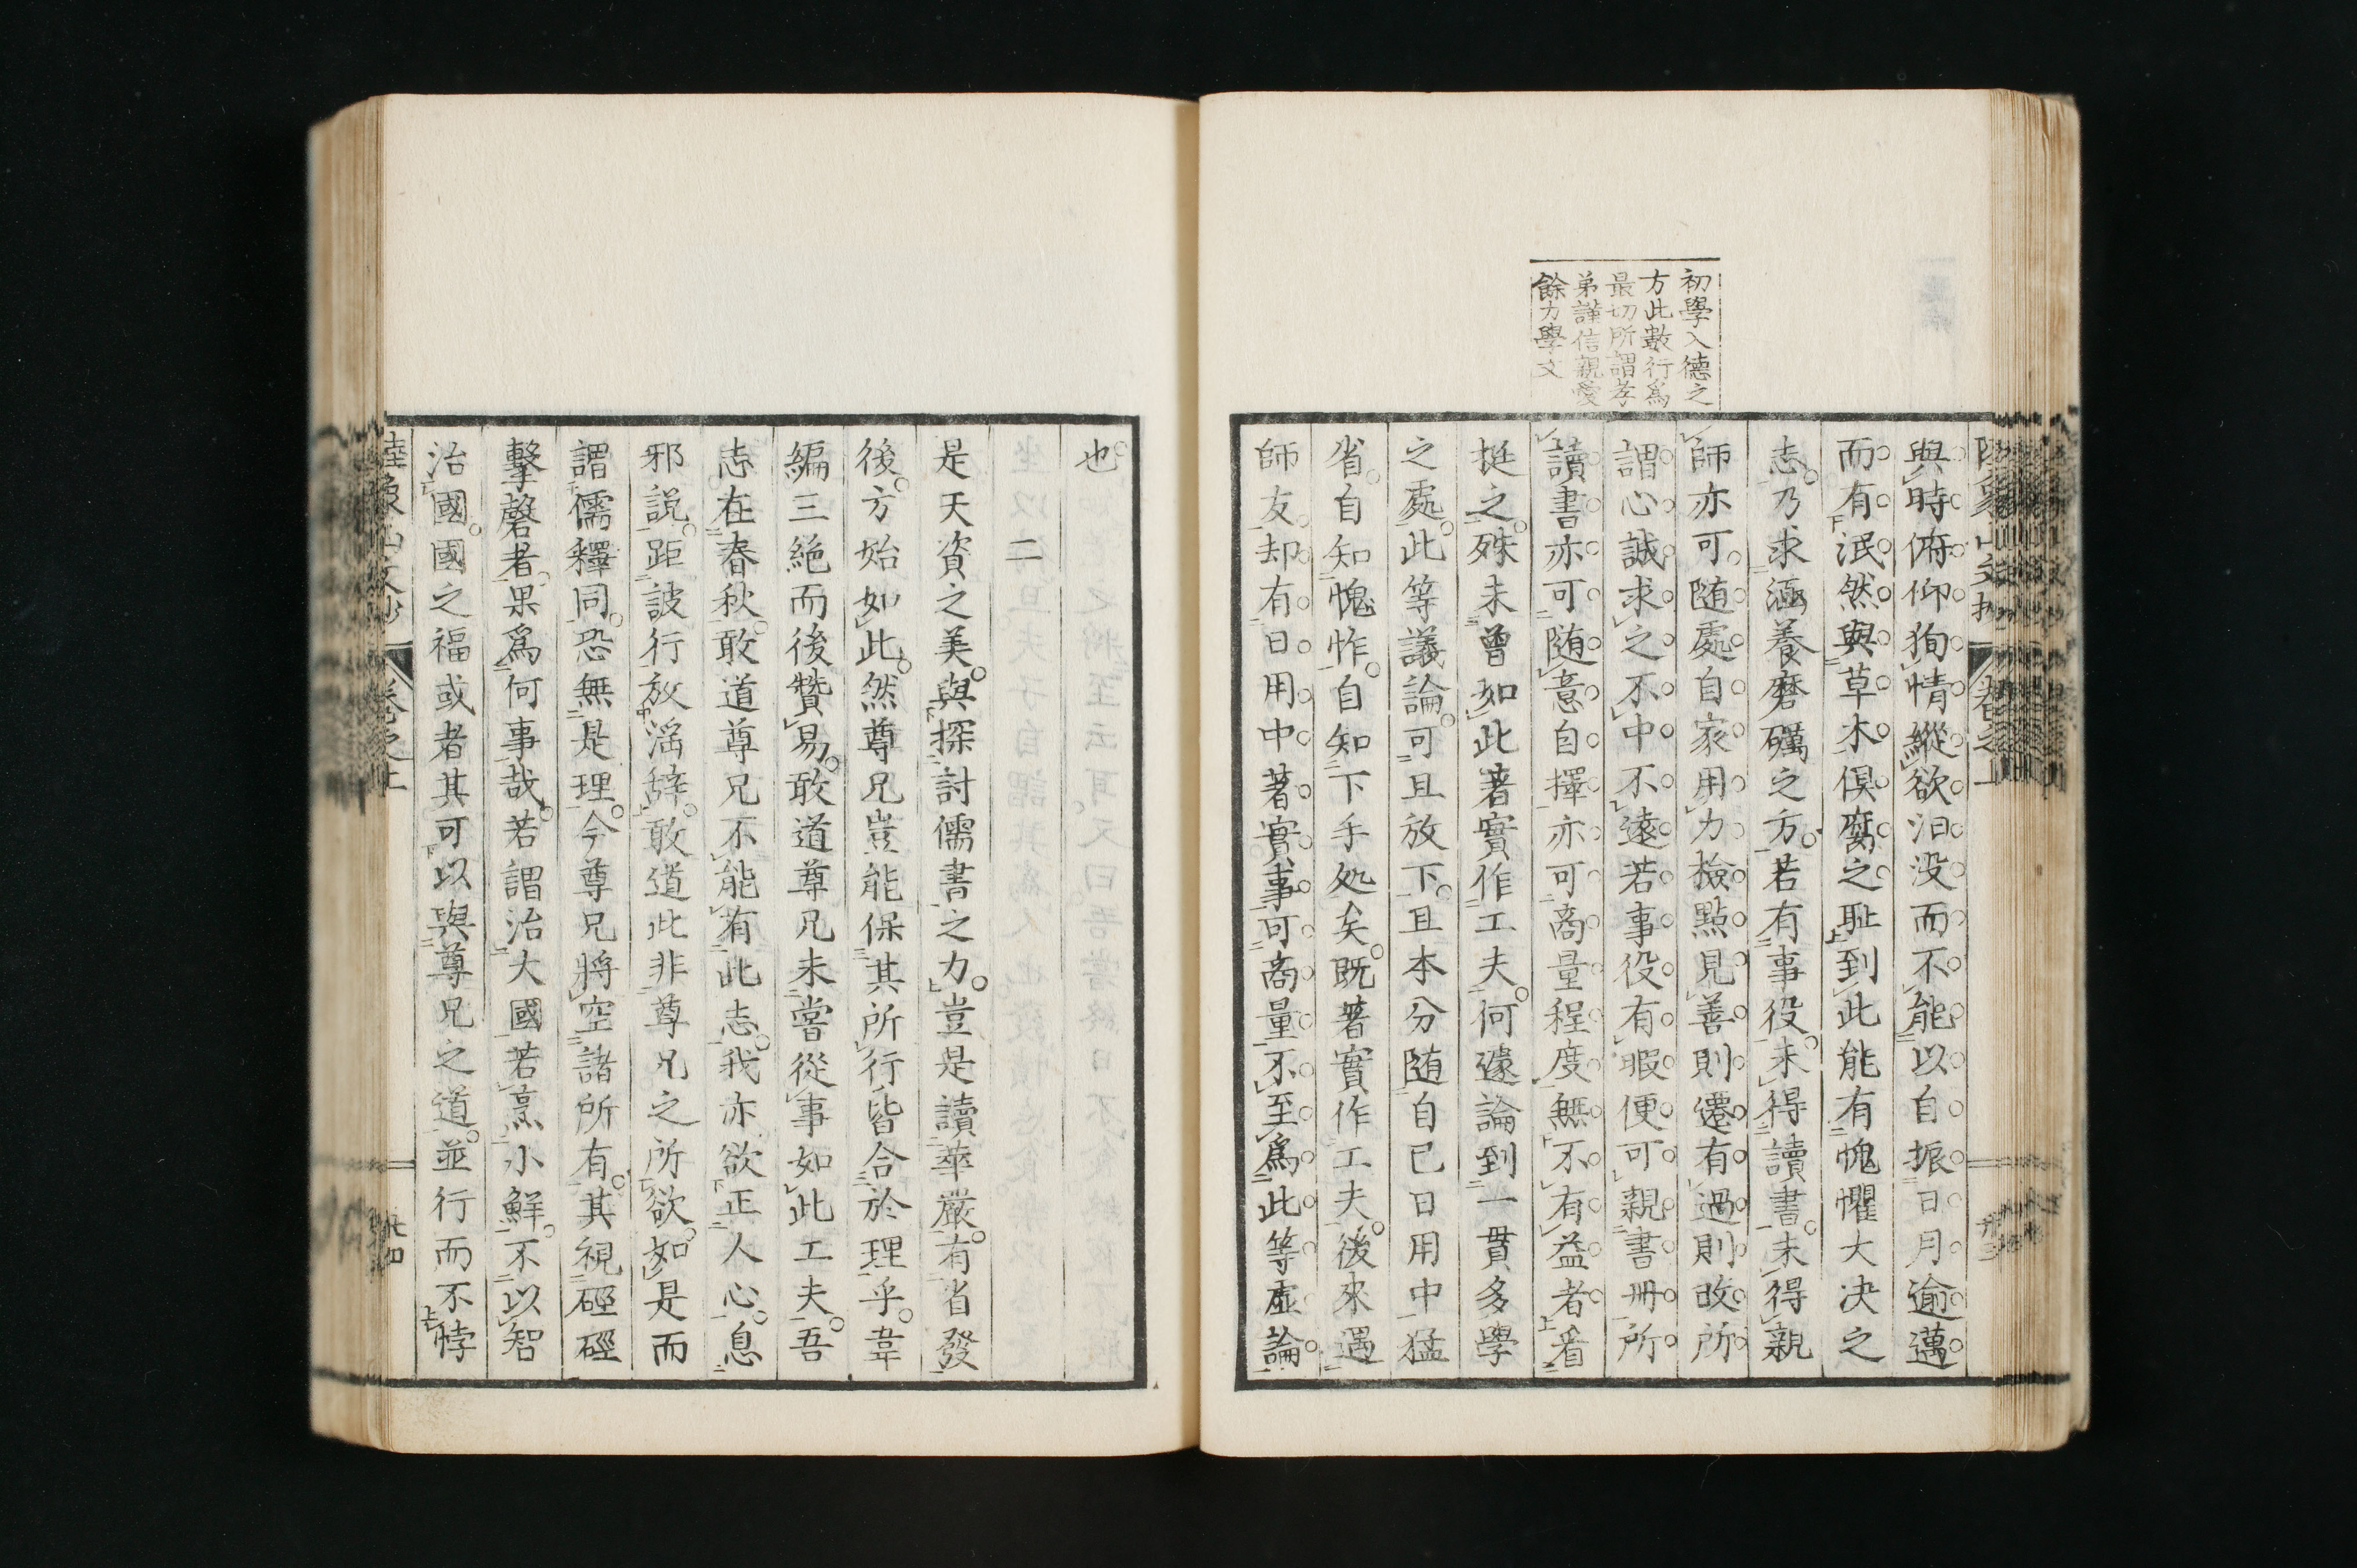 初學入德之
方此數行爲
最切所謂孝
弟謹信親愛
餘力學文
與時俯仰狥情縱欲汨没而不能以自振日月逾邁
而有泯然與草木俱腐之耻到此能有愧懼大决之
志乃求涵養磨礪之方若有事役未得讀書未得親
師亦可随處自家用力檢點見善則遷有過則改所
謂心誠求之不中不遠若事役有暇便可親書冊所
讀書亦可随意自擇亦可商量程度無不有益者看
挺之殊未曾如此著實作工夫何遽論到一貫多學
之處此等議論可且放下且本分随自已日用中猛
省自知愧怍自知下手処矣既著實作工夫後來遇
師友却有日用中著實事可商量不至爲此等虛論
也
二
是天資之美與探討儒書之力豈是讀華嚴有省發
後方始如此然尊兄豈能保其所行皆合於理乎韋
編三絶而後贊易敢道尊兄未嘗從事如此工夫吾
志在春秋敢道尊兄不能有此志我亦欲正人心息
邪説距詖行放滛辭敢道此非尊兄之所欲如是而
謂儒釋同恐無是理今尊兄將空諸所有其視硜硜
擊磬者果爲何事哉若謂治大國若烹小鮮不以智
治國國之福或者其可以與尊兄之道並行而不悖
陸象山文抄 卷之上 廿四